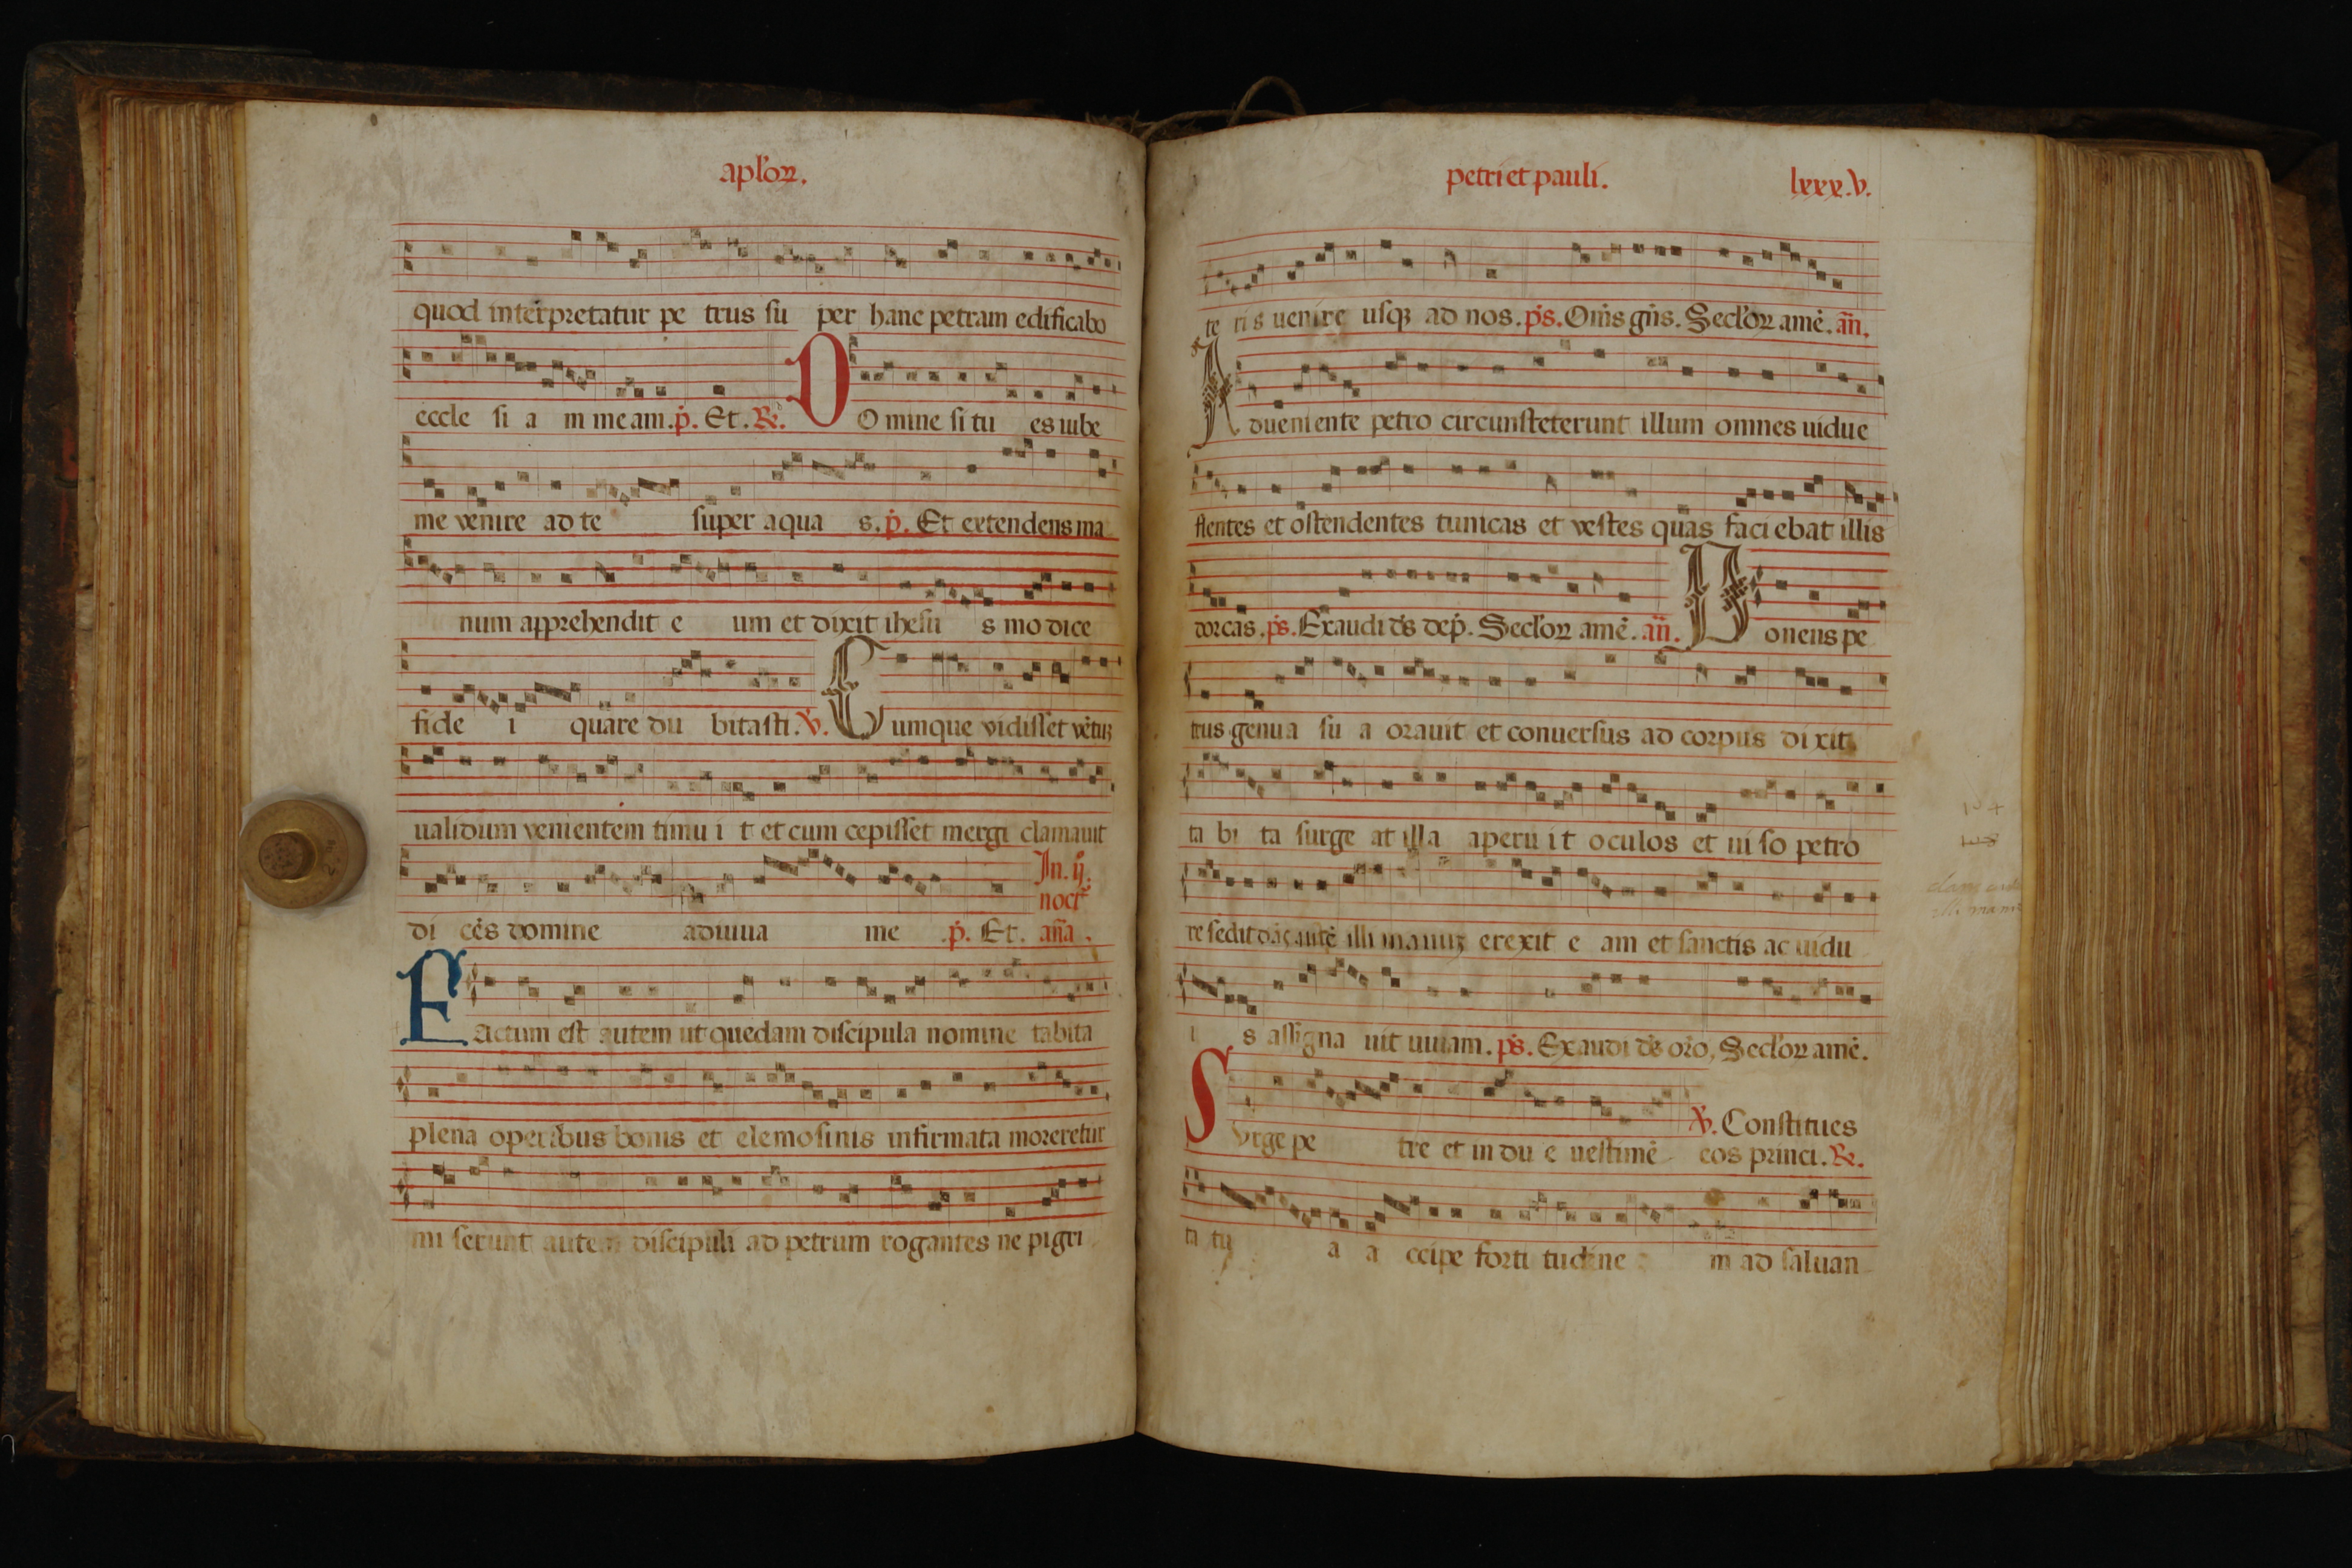 aploꝝ.
quod interpretatur pe trus su per hanc petram edificabo
eccle si a m meam. p̄. Et. ℟. D O mine si tu es iube
me venire ad te super aqua s. p̄. Et extendens ma
num apprehendit e um et dixit ihesu s modice
fide i quare du bitasti. ℣. Cumque vidisset vētuꝫ
ualidum venientem timu i t et cum cepisset mergi clamauit
In. ij. noct
di cēs domine adiuua me .p̄. Et. an̄a.
Factum est autem ut quedam discipula nomine tabita
plena operibus bonis et elemosinis infirmata moreretur
mi serunt autem discipuli ad petrum rogantes ne pigri
petri et pauli. lxxx.v.
te ris uenire usqꝫ ad nos. ps. Om̄s gn̄s. Secl'oꝝ amē. an̄.
Adueniente petro circunsteterunt illum omnes uidue
flentes et ostendentes tunicas et vestes quas faci ebat illis
dorcas. ps. Exaudi ds dep̄. Secl'oꝝ amē. an̄. Ponens pe
trus genua su a orauit et conuersus ad corpus di xit
ta bi ta surge at illa aperu it oculos et ui so petro
re sedit illi manuꝫ erexit e am et sanctis ac uidu
i s assigna uit uiuam. ps. Exaudi ds oro, Secl'oꝝ amē.
℣. Constitues
Surge pe tre et in du e uestimē eos princi. ℟.
ta tu a a ccipe forti tudine m ad saluan